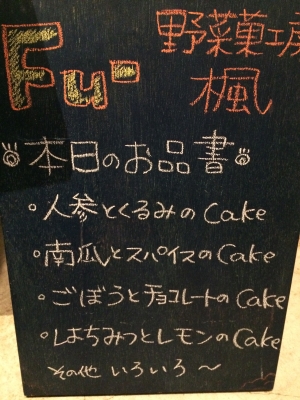 Fu-
野菜菓工房
楓
本日のお品書
◦人参とくるみのCake
◦南瓜とスパイスのCake
◦ごぼうとチョコレートのCake
◦はちみつとレモンのCake
その他 いろいろ〜